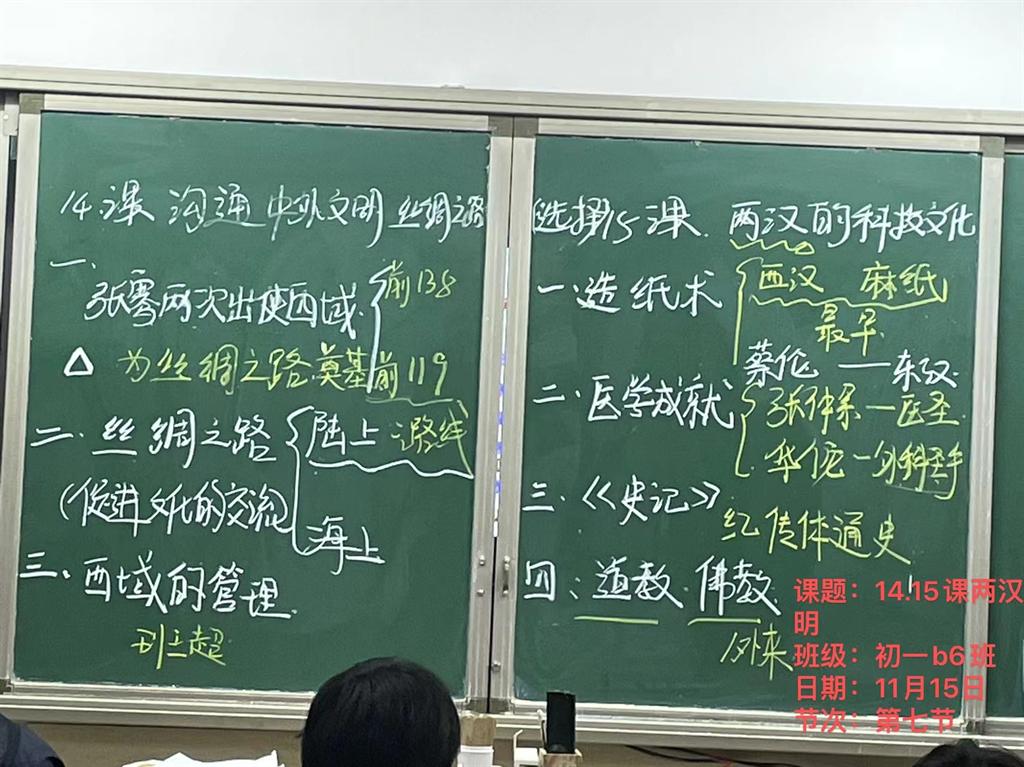 14.课 沟通中外文明 丝绸之路
一、
张骞两次出使西域
前138
△ 为丝绸之路奠基
前119
二、丝绸之路
陆上 路线
(促进文化的交流)
海上
三、西域的管理
班超
选择15课 两汉的科技文化
一、造纸术
西汉 麻纸
最早
蔡伦——东汉
二、医学成就
张仲景—医圣
华佗—外科圣手
三、《史记》
纪传体通史
四、道教、佛教
外来
课题：14.15课两汉
明
班级：初一b6班
日期：11月15日
节次：第七节